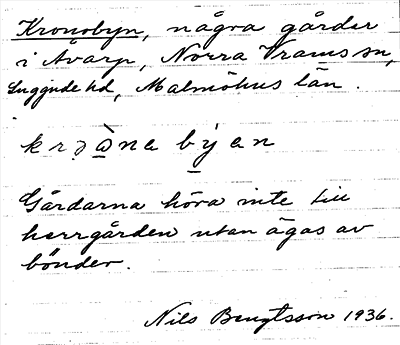 Kronobyn, några gårder
i Avarp, Norra Vrams sn,
Luggude hd, Malmöhus län.
krɔ̀na býan
Gårdarna höra inte till
herrgården utan ägas av
bönder.
Nils Bengtsson 1936.